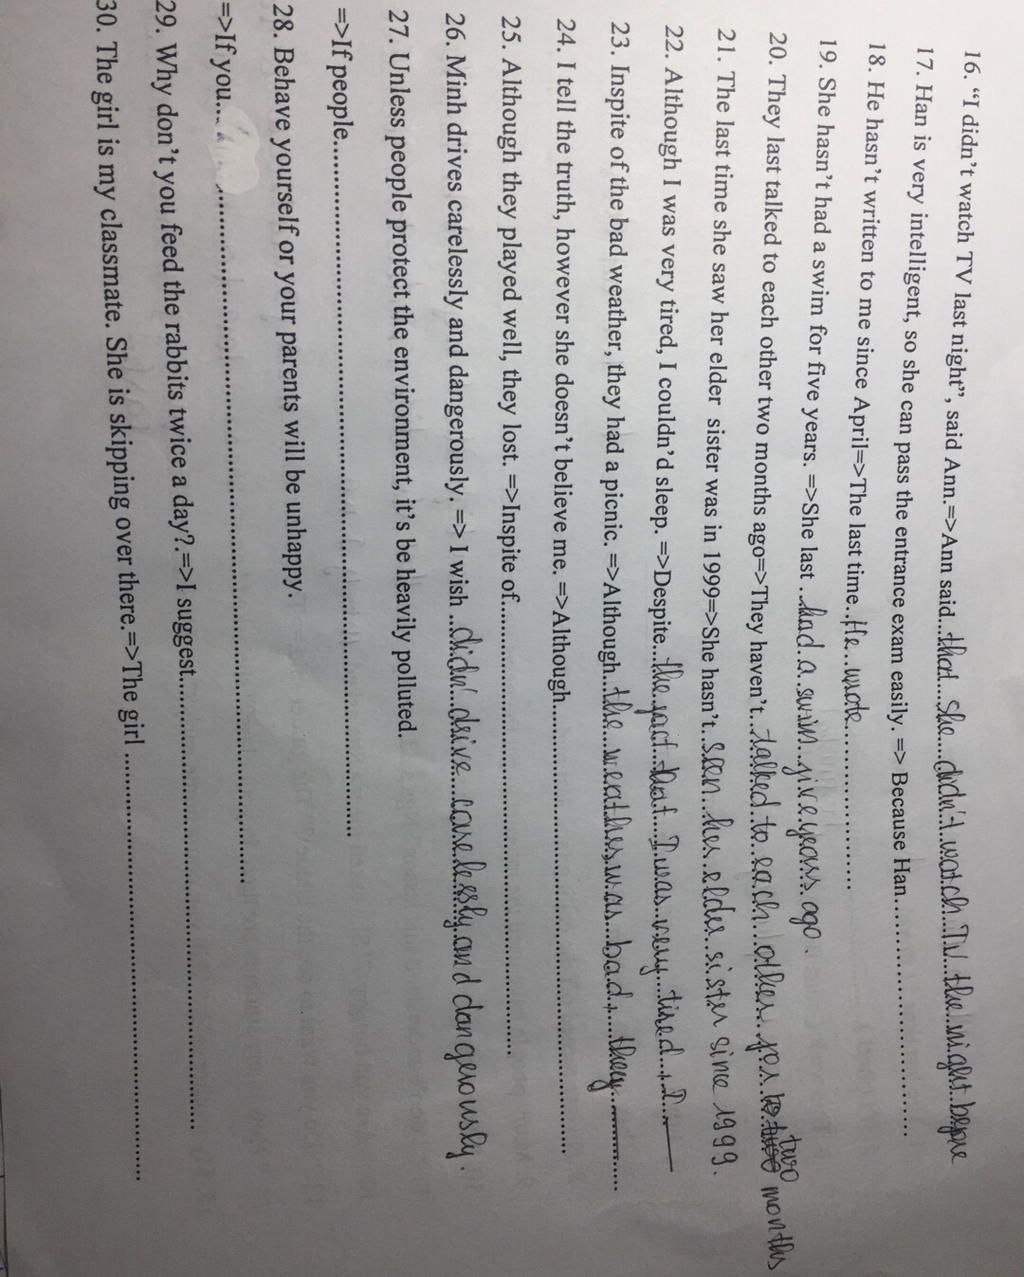 16. “I didn’t watch TV last night”, said Ann.=>Ann said...that...she...didn't watch TV...the...night...before
17. Han is very intelligent, so she can pass the entrance exam easily. => Because Han..............................
18. He hasn’t written to me since April=>The last time...He...wrote....................
19. She hasn’t had a swim for five years. =>She last ...had..a..swim..five years..ago.
20. They last talked to each other two months ago=>They haven’t...talked to..each..other..for two months
21. The last time she saw her elder sister was in 1999=>She hasn’t..seen..her..elder..sister since 1999.
22. Although I was very tired, I couldn’d sleep. =>Despite...the fact..that...I was..very..tired..,I...
23. Inspite of the bad weather, they had a picnic. =>Although...the..weather..was...bad,...they...........
24. I tell the truth, however she doesn’t believe me. =>Although...........................................................................
25. Although they played well, they lost. =>Inspite of...........................................................................
26. Minh drives carelessly and dangerously. => I wish ...didn'..drive...carelessly..and dangerously.
27. Unless people protect the environment, it’s be heavily polluted.
=>If people.....................................................................................................................
28. Behave yourself or your parents will be unhappy.
=>If you....................................................................................................................
29. Why don’t you feed the rabbits twice a day?.=>I suggest...........................................................................
30. The girl is my classmate. She is skipping over there.=>The girl ......................................................................